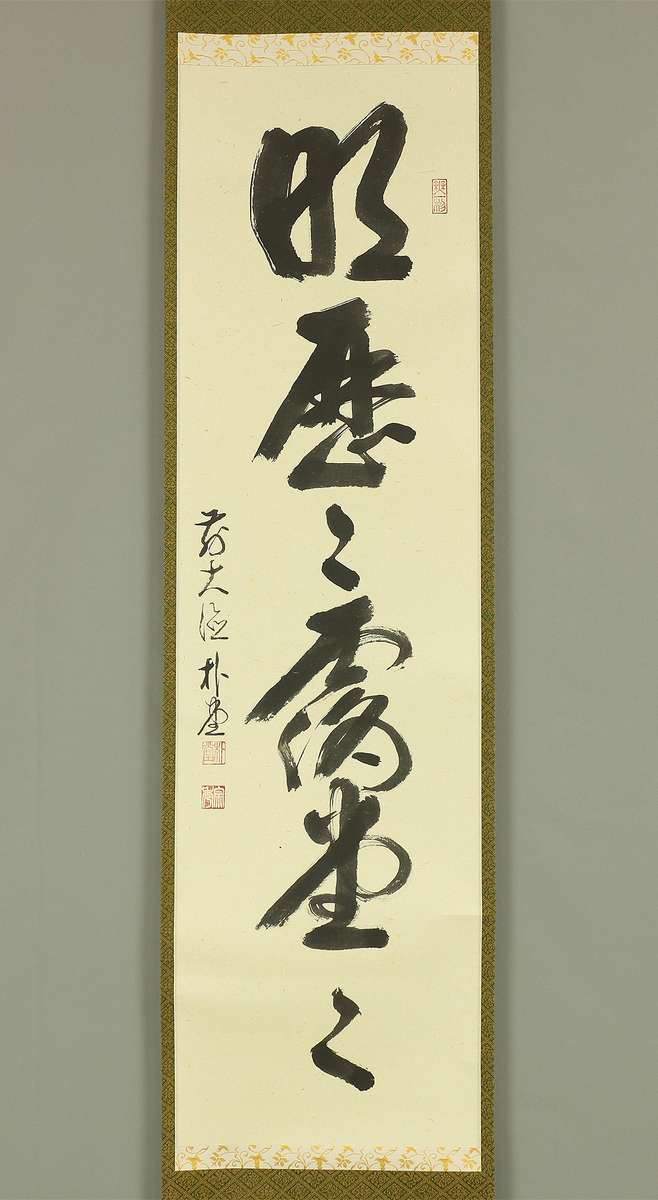 明歴々露堂々
前大徳朴堂